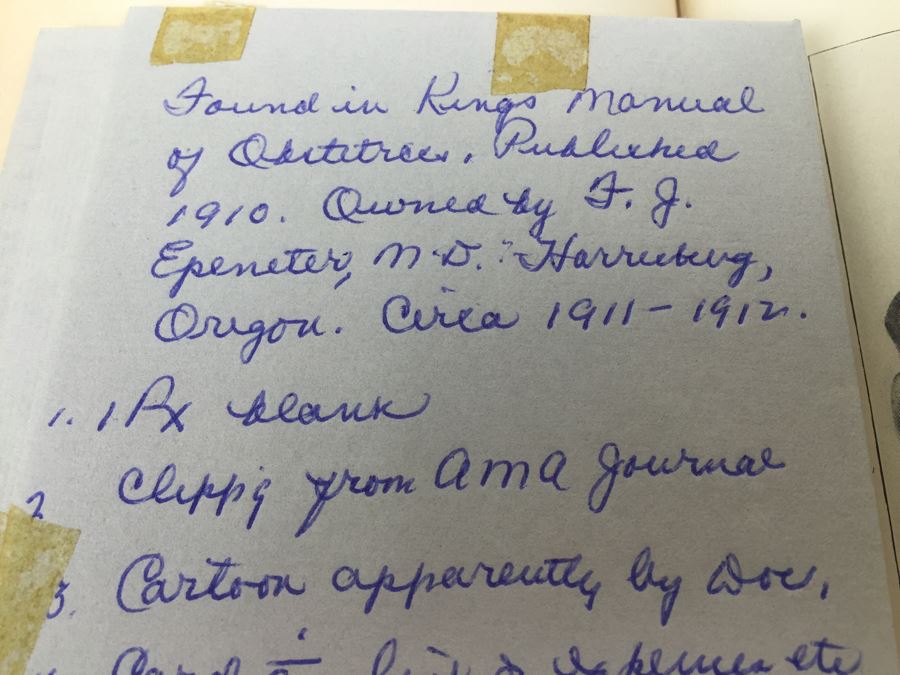 Found in Kings Manual
of Obstetrics. Published
1910. Owned by F. J.
Epeneter, M.D. Harrisburg,
Oregon. Circa 1911-1912.
1. 1 Rx blank
2 Clipp'g from AMA Journal
3. Cartoon apparently by Doc.
expenses etc